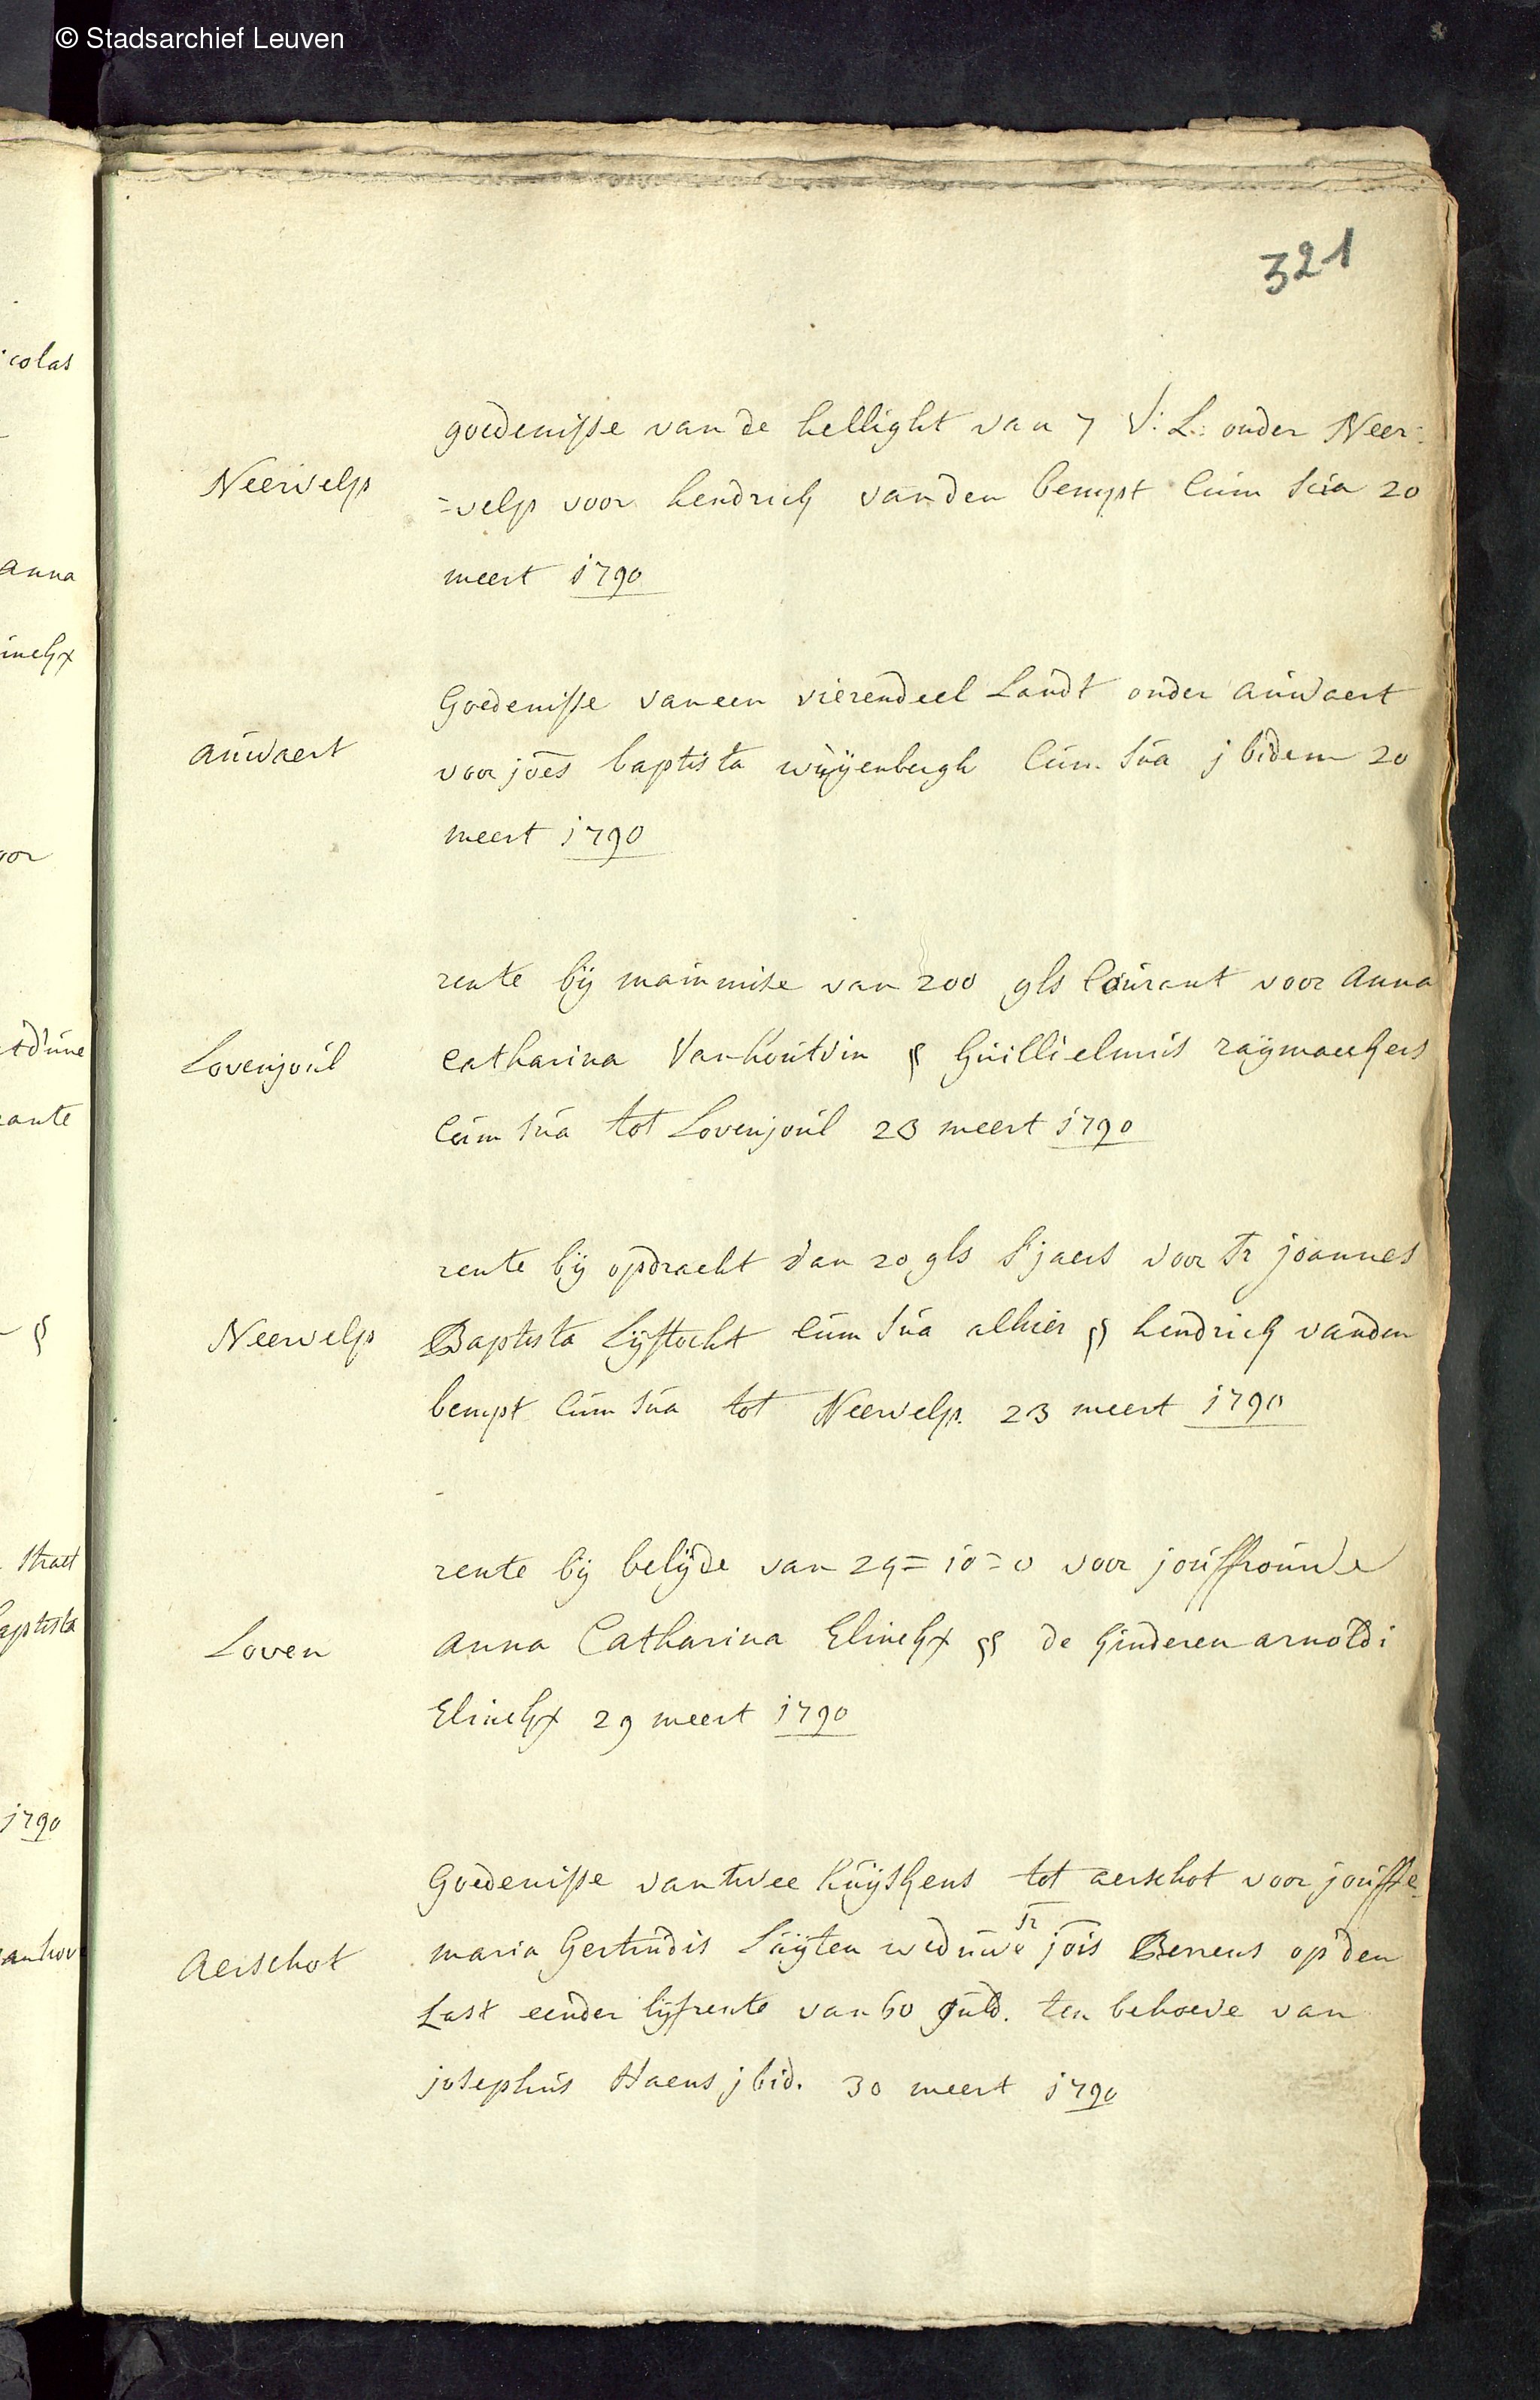 © Stadsarchief Leuven
321
Neervelp
goedenisse van de hellight van 7 V: L: onder Neer=
=velp voor hendrick vanden bempt cum sua 20
meert 1790
auwaert
Goedenisse van een vierendeel Landt onder auwaert
voor joes baptista wuÿenbergh cum sua jbidem 20
meert 1790
Lovenjoul
rente bÿ mainmise van 200 gls Courant voor Anna
catharina Vanhoutvin § Guillielmus raÿmaeckers
cum sua tot Lovenjoul 23 meert 1790
Neervelp
rente bÿ opdracht van 20 gls s'jaers voor Sr joannes
Baptista Lÿftocht cum sua alhier § hendrick vanden
bempt cum sua tot Neervelp 23 meert 1790
Loven
rente bÿ belÿde van 29=10=0 voor jouffrouwe
anna Catharina Elinckx §§ de kinderen arnoldi
Elinckx 29 meert 1790
Aerschot
Goedenisse van twee huÿskens tot aerschot voor jouffe
maria Gertrudis Luÿten weduwe Sr jois Berrens op den
Last eender lÿfrente van 60 guld. ten behoeve van
josephus Haens jbid. 30 meert 1790
icolas
anna
inckx
oor
§
straet
aptista
1790